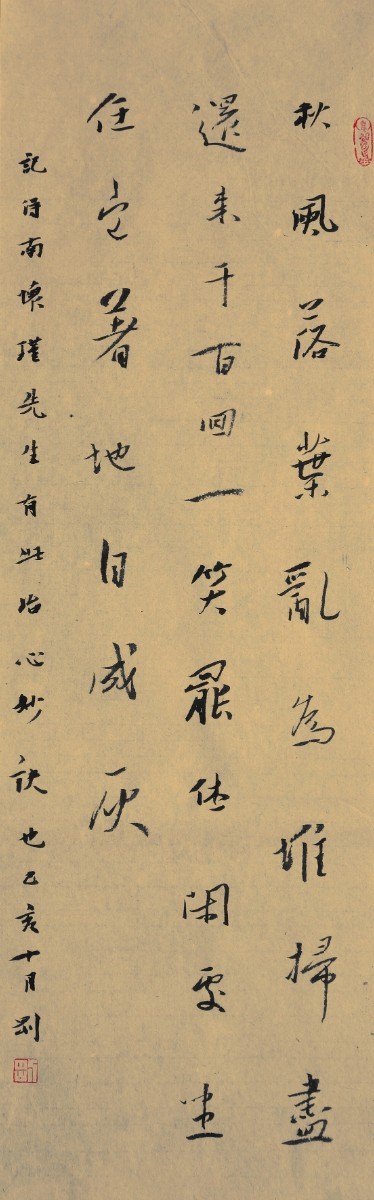 秋風落葉亂為堆掃盡
還來千百回一笑罷休閑處坐
任它著地自成灰
記得南懷瑾先生有此治心妙訣也己亥十月剛